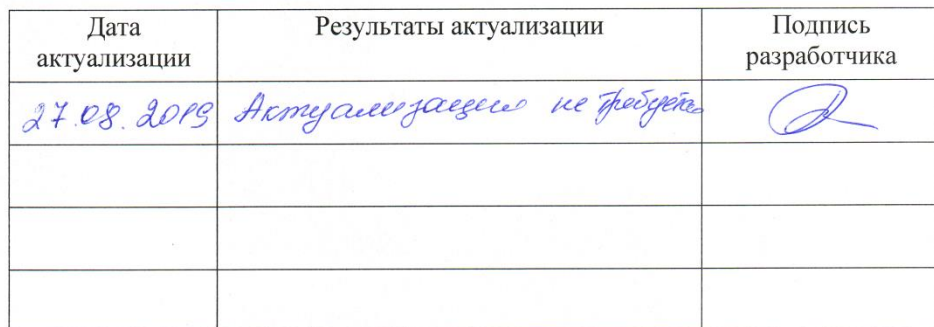 Дата
актуализации
Результаты актуализации
Подпись
разработчика
27.08.2019 Актуализация не требуется